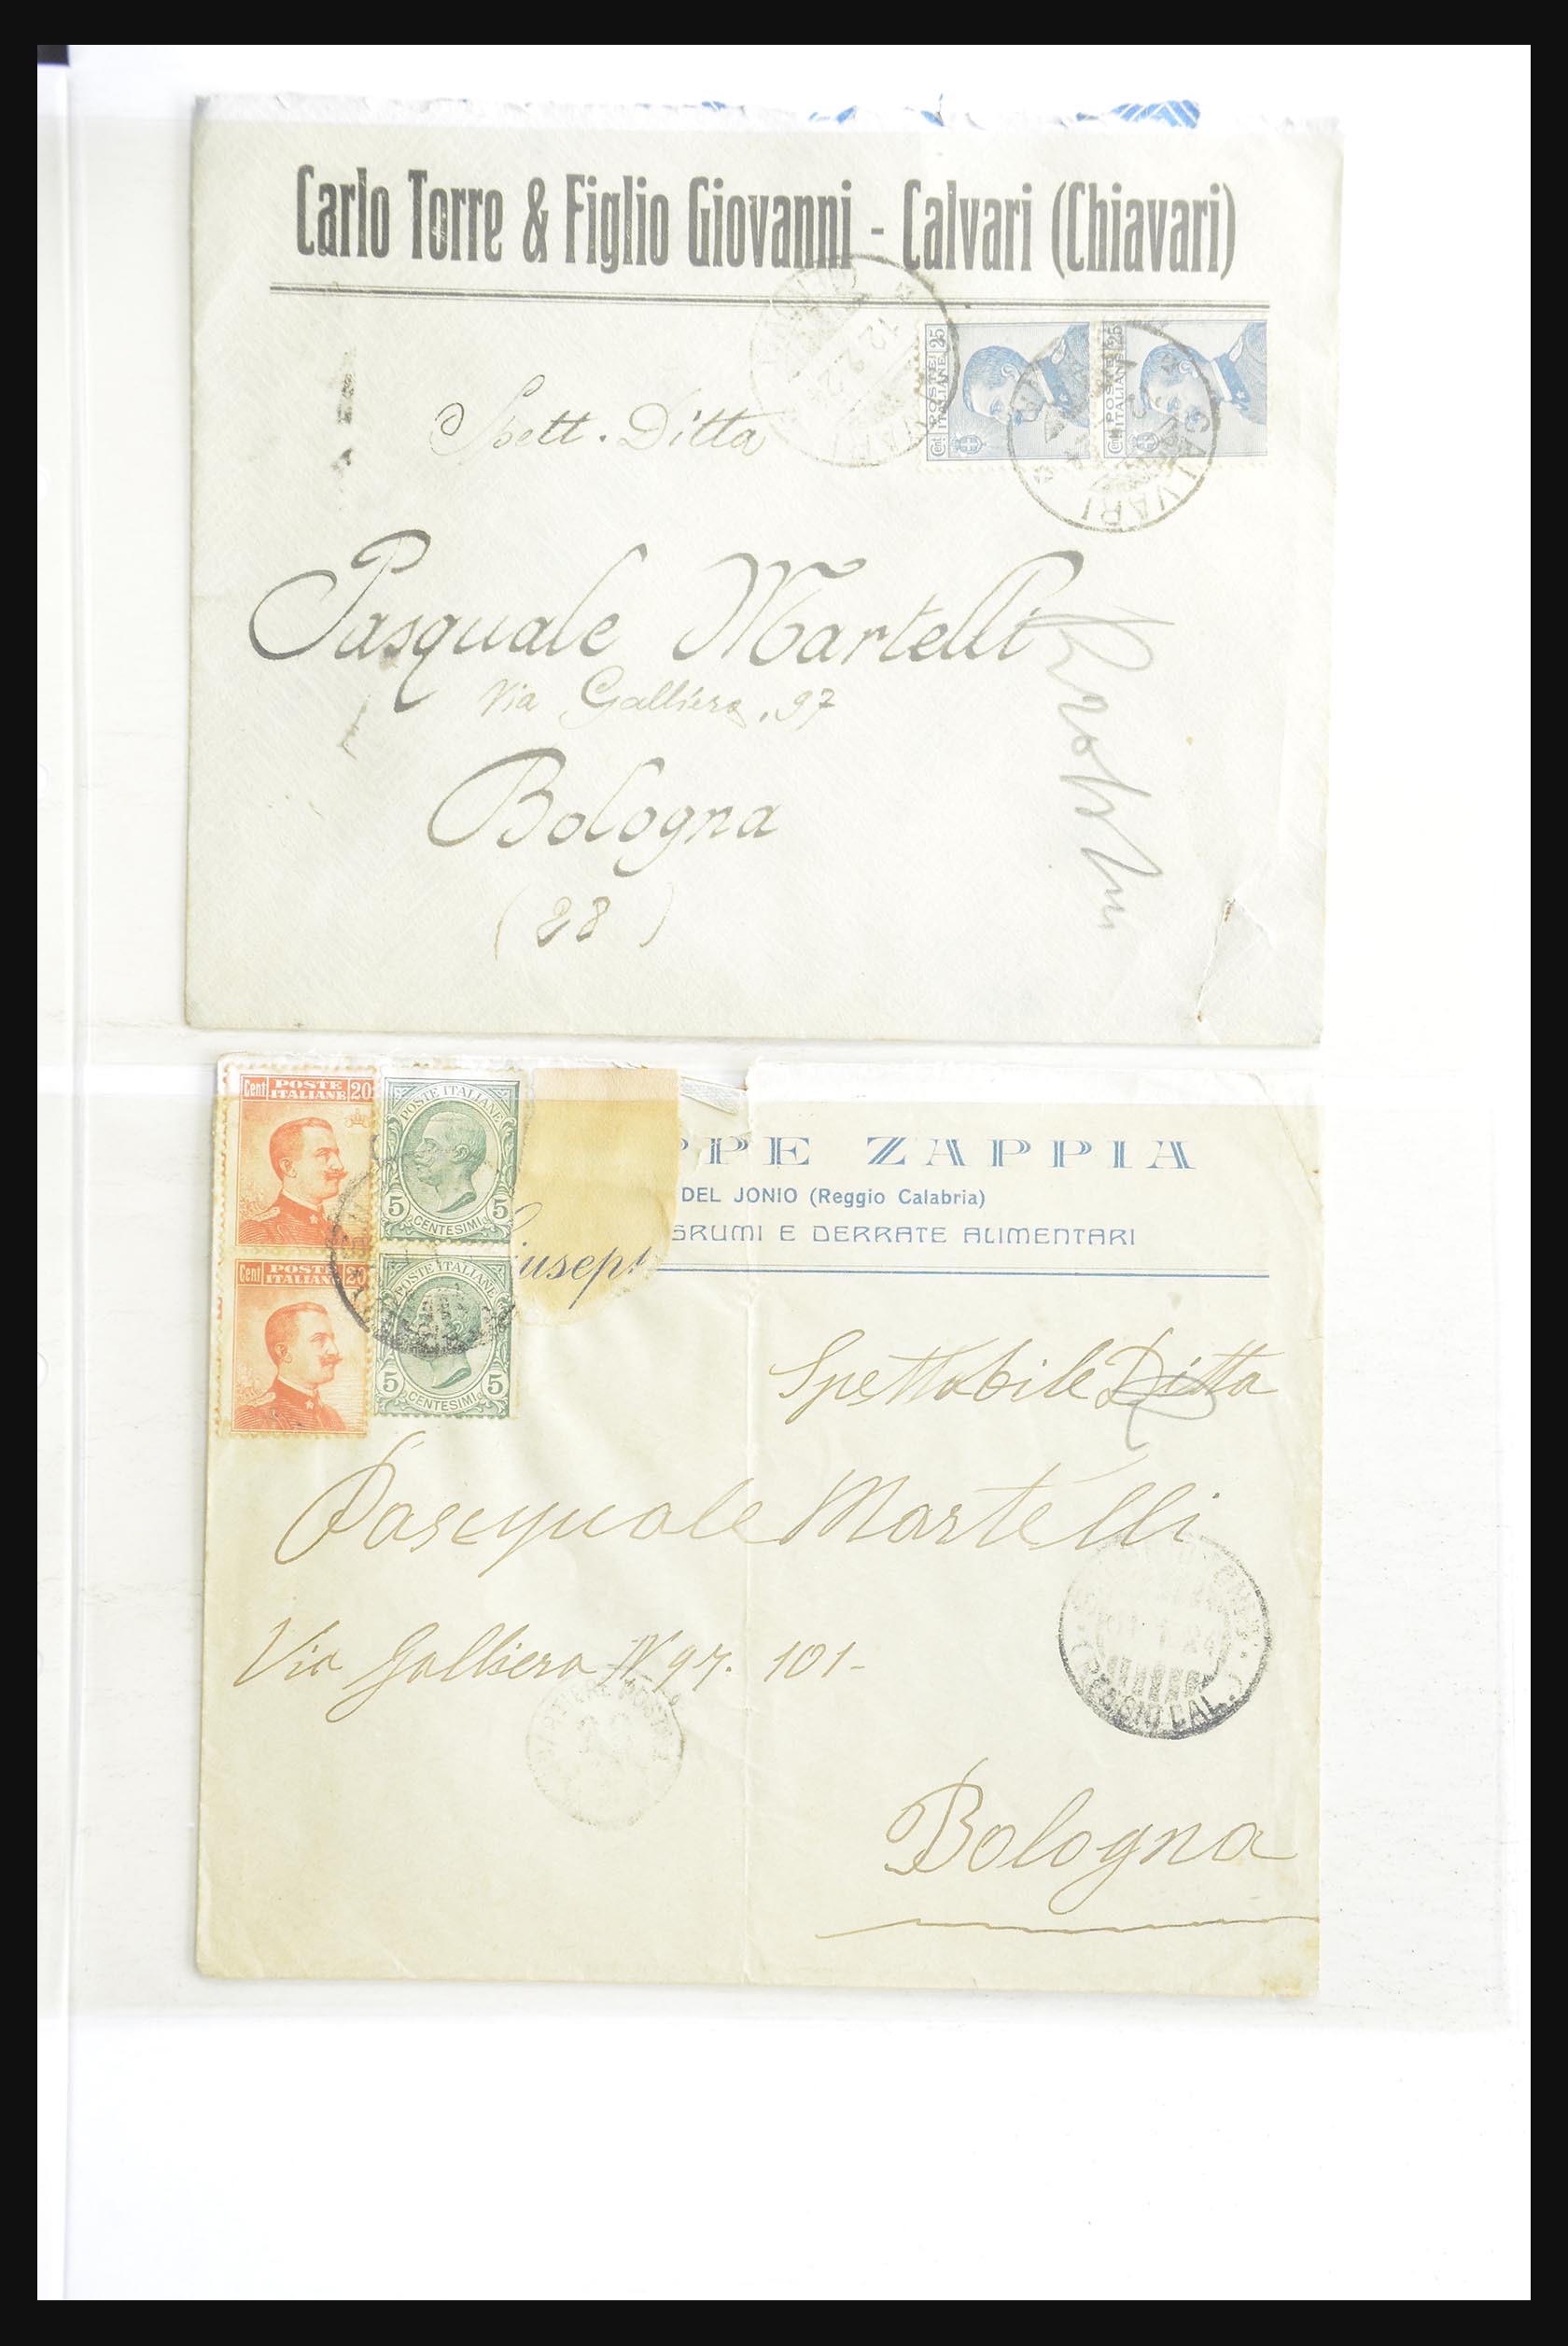 Carlo Torre & Figlio Giovanni - Calvari (Chiavari)
POSTE ITALIANE
Cent 25
POSTE ITALIANE
Cent 25
12.2.24
CALVARI
Spett. Ditta
Pasquale Martelli
Via Galliera, 97
Bologna
(28)
Cent POSTE ITALIANE 20
POSTE ITALIANE
5 CENTESIMI 5
Cent POSTE ITALIANE 20
POSTE ITALIANE
5 CENTESIMI 5
PPE ZAPPIA
DEL JONIO (Reggio Calabria)
GRUMI E DERRATE ALIMENTARI
iusepp
Spettabile Ditta
Pasquale Martelli
Via Galliera N 97. 101-
Bologna